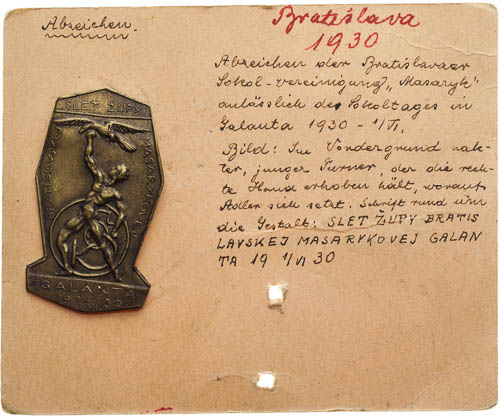 Abzeichen.
Bratislava
1930
Abzeichen der Bratislavaer
Sokol-vereinigung „Masaryk"
anlässlich des Sokoltages in
Galanta 1930 - 1/VI.
Bild: Im Vordergrund nak-
ter, junger Turner, der die rech-
te Hand erhoben hält, worauf
Adler sich setzt. Schrift rund um
die Gestalt: SLET ŽUPY BRATIS
LAVSKEJ MASARYKOVEJ GALAN
TA 19 1/VI 30
SLET ŽUPY
BRATISLAVSKEJ
MASARYKOVEJ
GALANTA